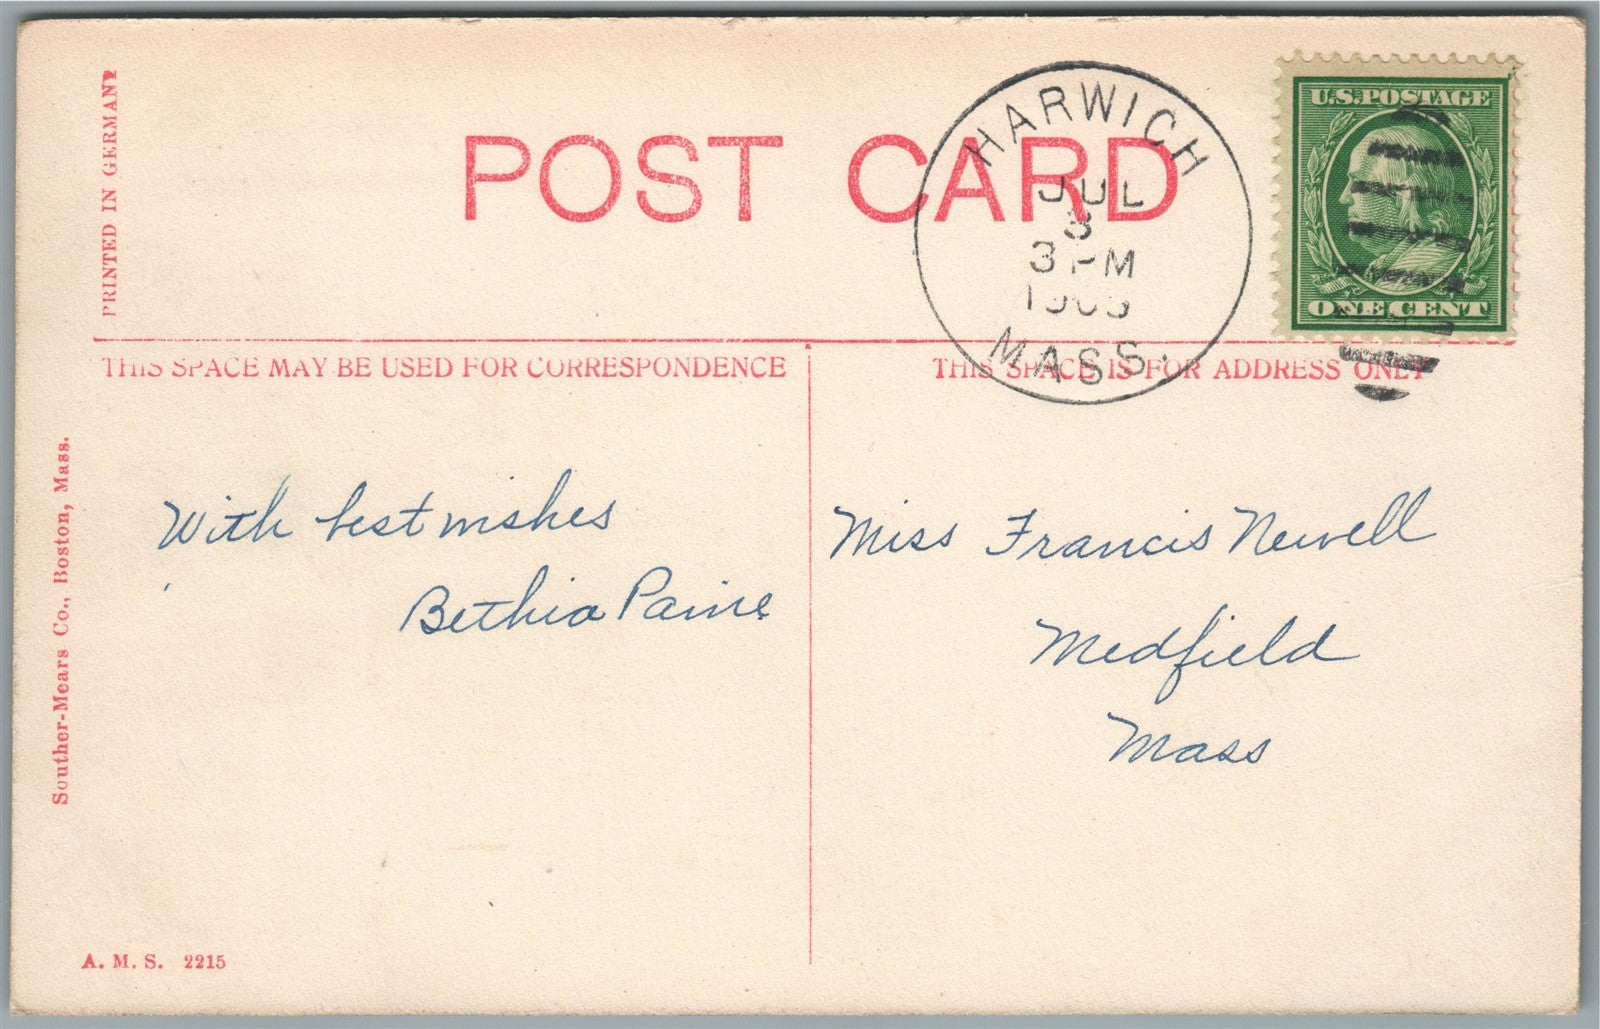 PRINTED IN GERMANY
POST CARD
HARWICH
JUL
3
3 PM
MASS.
U.S. POSTAGE
ONE CENT
THIS SPACE MAY BE USED FOR CORRESPONDENCE
THIS SPACE IS FOR ADDRESS ONLY
Souther-Mears Co., Boston, Mass.
With best wishes
Bethia Paine
Miss Francis Newell
Medfield
Mass
A. M. S. 2215